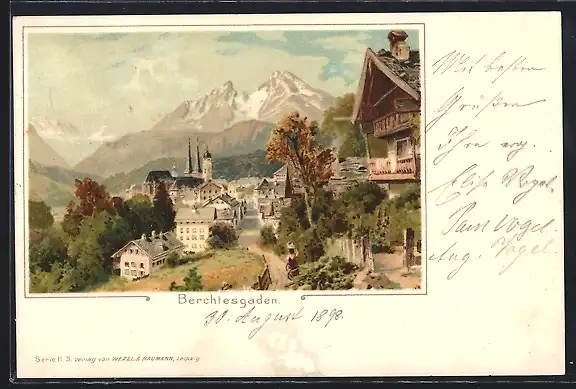 Mit besten
Grüßen
Ihre erg.
Elise Vogel.
Paul Vogel.
Aug. Vogel.
Berchtesgaden.
30. August 1898.
Serie II. 5. Verlag von WEZEL & NAUMANN, Leipzig